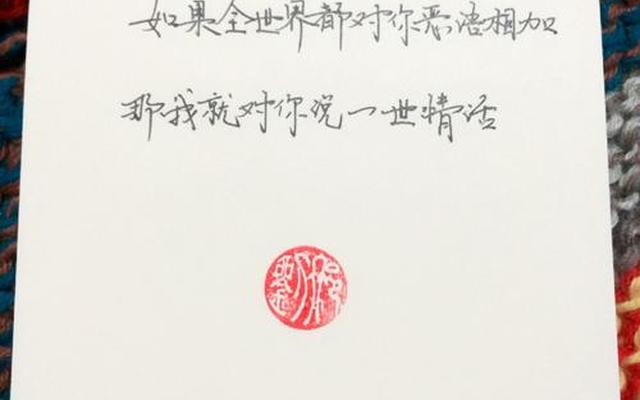 如果全世界都对你恶语相加
那我就对你说一世情话